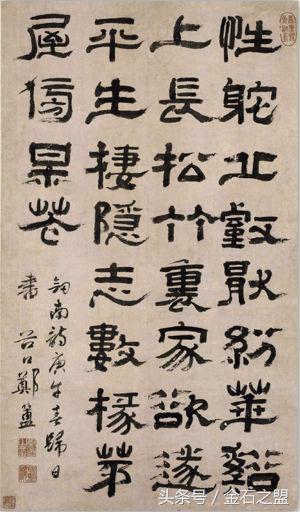 性躭丘壑厭紛華谿
上長松竹裏家欲遂
平生棲隱志數椽茅
屋傍某花
劍南詩庚午春歸日
書 谷口鄭簠
头条号 / 金石之盟